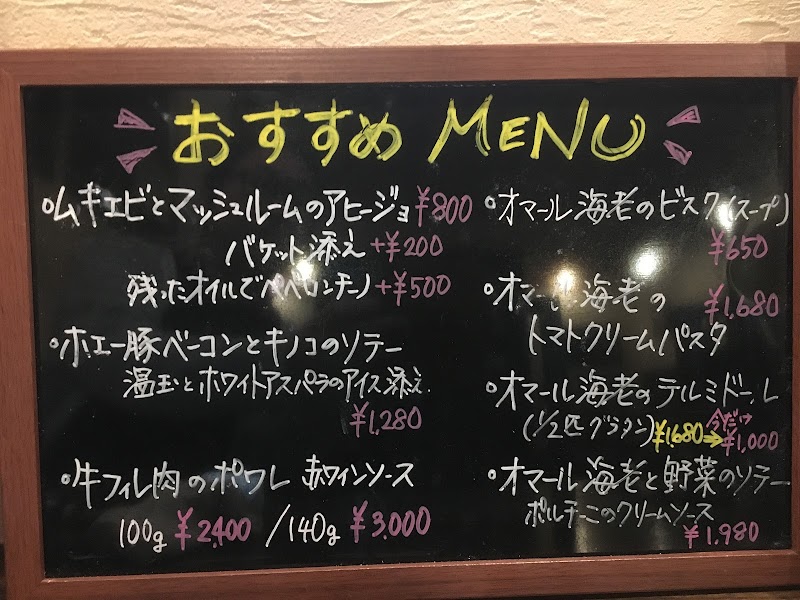 おすすめ MENU
・ムギエビとマッシュルームのアヒージョ ¥800
バケット添え +¥200
残ったオイルでペペロンチーノ +¥500
・ホエー豚ベーコンとキノコのソテー
温玉とホワイトアスパラのアイス添え
¥1,280
・牛フィレ肉のポワレ 赤ワインソース
100g ¥2,400 /140g ¥3,000
・オマール海老のビスク(スープ)
¥650
・オマール海老の ¥1,680
トマトクリームパスタ
・オマール海老のテルミドール
(1/2匹グラタン) ¥1,680→今だけ¥1,000
・オマール海老と野菜のソテー
ポルチーニのクリームソース
¥1,980